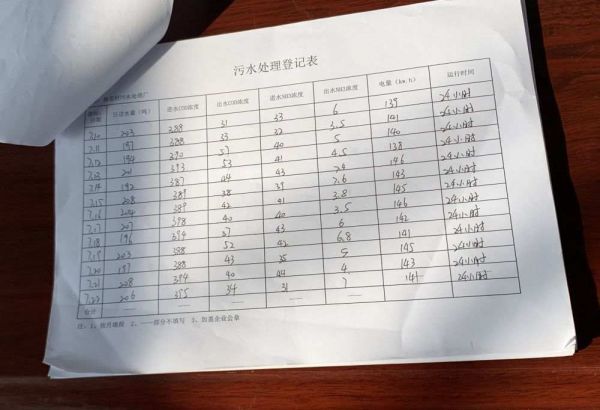 污水处理登记表
污水处理厂
日进水量（吨） 进水COD浓度 出水COD浓度 进水NH3浓度 出水NH3浓度 电量（kw.h） 运行时间
7.10 203 288 31 33 6 139 24小时
7.11 197 388 33 32 3.5 141 24小时
7.12 194 390 37 40 5 140 24小时
7.13 201 393 53 41 4.5 138 24小时
7.14 192 387 44 43 146 24小时
7.15 208 389 38 39 2.6 143 24小时
7.16 204 389 42 41 3.8 145 24小时
7.17 207 398 40 40 3.5 146 24小时
7.18 196 394 37 43 6 142 24小时
7.19 203 388 52 42 6.8 141 24小时
7.20 197 388 43 35 5 145 24小时
7.21 208 394 40 44 4 143 24小时
7.22 206 355 34 31 141 24小时
合计 —— —— —— ——
注：1、按月填报 2、——部分不填写 3、加盖企业公章